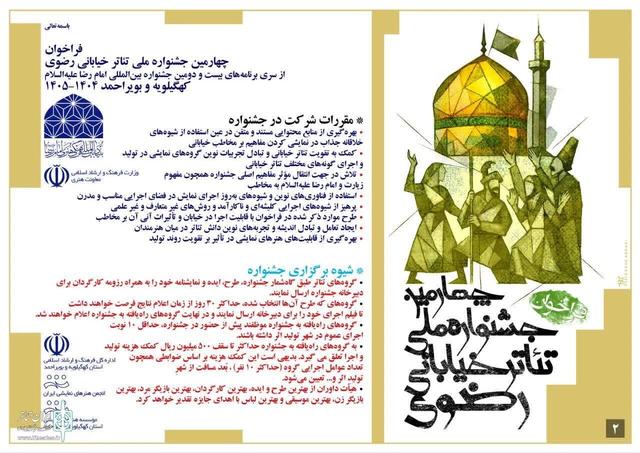 باسمه‌تعالی
فراخوان
چهارمین جشنواره ملی تئاتر خیابانی رضوی
از سری برنامه‌های بیست و دومین جشنواره بین‌المللی امام رضا علیه‌السلام
کهگیلویه و بویراحمد ۱۴۰۴-۱۴۰۵
* مقررات شرکت در جشنواره
• بهره‌گیری از منابع محتوایی مستند و متقن در عین استفاده از شیوه‌های
خلاقانه جذاب در نمایشی کردن مفاهیم بر مخاطب خیابانی
• کمک به تقویت تئاتر خیابانی و تبادل تجربیات نوین گروه‌های نمایشی در تولید
و اجرای گونه‌های مختلف تئاتر خیابانی
• تلاش در جهت انتقال مؤثر مفاهیم اصلی جشنواره همچون مفهوم
زیارت و امام رضا علیه‌السلام به مخاطب
• استفاده از فناوری‌های نوین و شیوه‌های به‌روز اجرای نمایش در فضای اجرایی مناسب و مدرن
• پرهیز از شیوه‌های اجرایی کلیشه‌ای و ناکارآمد و روش‌های غیر متعارف و غیر علمی
• طرح موارد ذکر شده در فراخوان با قابلیت اجرا در خیابان و تأثیرات آنی آن بر مخاطب
• ایجاد تعامل و تبادل اندیشه و تجربه‌های نوین دانش تئاتر در میان هنرمندان
• بهره‌گیری از قابلیت‌های هنرهای نمایشی در تأثیر بر تقویت روند تولید
* شیوه برگزاری جشنواره
• گروه‌های تئاتر طبق گاه‌شمار جشنواره، طرح، ایده و نمایشنامه خود را به همراه رزومه کارگردان برای
دبیرخانه جشنواره ارسال نمایند.
• گروه‌های که طرح آن‌ها انتخاب شده، حداکثر ۳۰ روز از زمان اعلام نتایج فرصت خواهند داشت
تا فیلم اجرای خود را برای دبیرخانه ارسال نمایند و در نهایت گروه‌های راه‌یافته به جشنواره اعلام خواهند شد.
• گروه‌های راه‌یافته به جشنواره موظفند پیش از حضور در جشنواره، حداقل ۱۰ نوبت
اجرای عموم در شهر تولید اثر داشته باشند.
• به گروه‌های راه‌یافته به جشنواره حداکثر تا سقف ۵۰۰ میلیون ریال کمک هزینه تولید
و اجرا تعلق می گیرد. بدیهی است این کمک هزینه بر اساس ضوابطی همچون
تعداد عوامل اجرایی گروه (حداکثر ۱۰ نفر)، بُعد مسافت از شهر
تولید اثر و.. تعیین می‌شود.
• هیأت داوران از بهترین طرح و ایده، بهترین کارگردان، بهترین بازیگر مرد، بهترین
بازیگر زن، بهترین موسیقی و بهترین لباس با اهدای جایزه تقدیر خواهد کرد.
وزارت فرهنگ و ارشاد اسلامی
معاونت هنری
اداره کل فرهنگ و ارشاد اسلامی
استان کهگیلویه و بویراحمد
انجمن هنرهای نمایشی ایران
استان کهگیلویه و بویراحمد
فراخوان
چهارمین
جشنواره ملی
تئاتر خیابانی
رضوی
۲